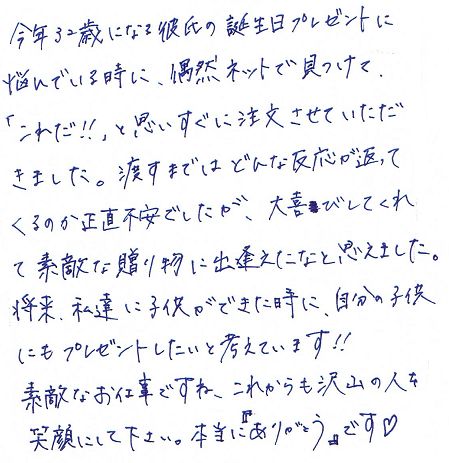 今年32歳になる彼氏の誕生日プレゼントに
悩んでいる時に、偶然ネットで見つけて、
「これだ!!」と思いすぐに注文させていただ
きました。渡すまではどんな反応が返って
くるのか正直不安でしたが、大喜びしてくれ
て素敵な贈り物に出逢えたなと思えました。
将来、私達に子供ができた時に、自分の子供
にもプレゼントしたいと考えています!!
素敵なお仕事ですね、これからも沢山の人を
笑顔にして下さい。本当に『ありがとう』です♡